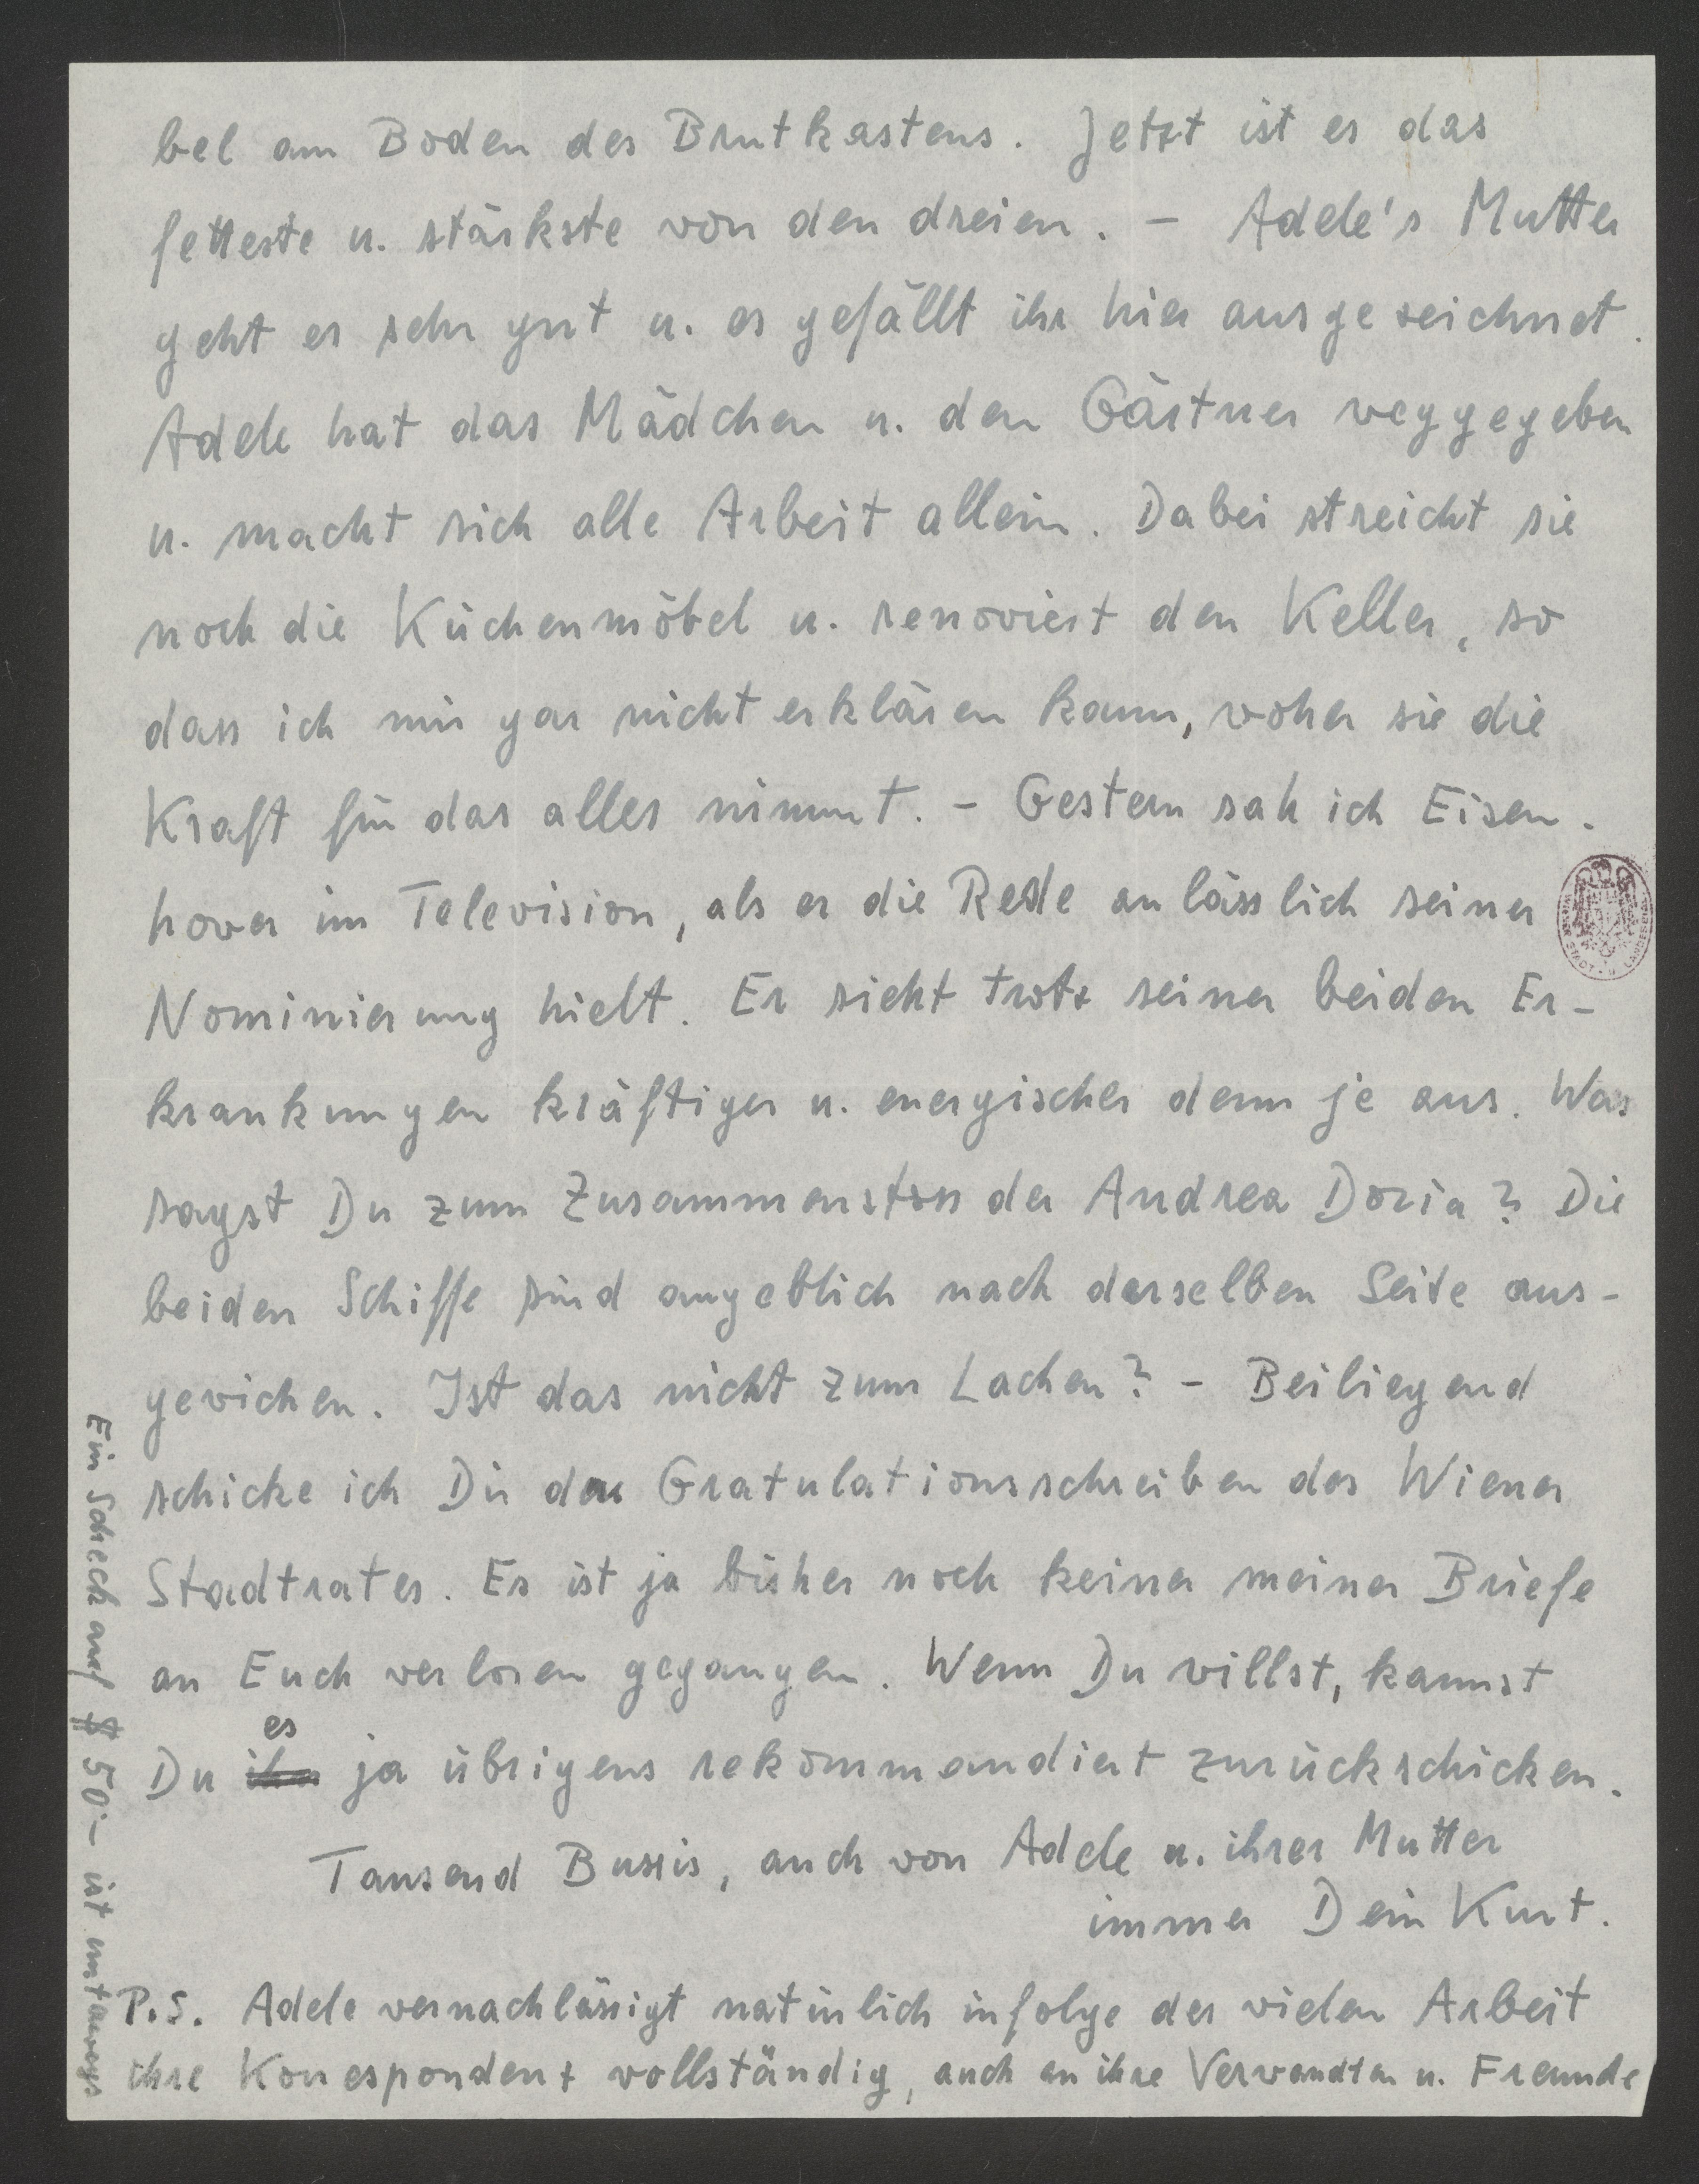 bel am Boden des Brutkastens. Jetzt ist es das
fetteste u. stärkste von den dreien. – Adele's Mutter
geht es sehr gut u. es gefällt ihr hier ausgezeichnet.
Adele hat das Mädchen u. den Gärtner weggegeben
u. macht sich alle Arbeit allein. Dabei streicht sie
noch die Küchenmöbel u. renoviert den Keller, so
dass ich mir gar nicht erklären kann, woher sie die
Kraft für das alles nimmt. – Gestern sah ich Eisen-
hower im Television, als er die Rede anlässlich seiner
Nominierung hielt. Er sieht trotz seiner beiden Er-
krankungen kräftiger u. energischer denn je aus. Was
sagst Du zum Zusammenstoss der Andrea Doria? Die
beiden Schiffe sind angeblich nach derselben Seite aus-
gewichen. Ist das nicht zum Lachen? – Beiliegend
schicke ich Dir das Gratulationsschreiben des Wiener
Stadtrates. Es ist ja bisher noch keiner meiner Briefe
an Euch verloren gegangen. Wenn Du willst, kannst
Du es ja übrigens rekommandiert zurückschicken.
Tausend Bussis, auch von Adele u. ihrer Mutter
immer Dein Kurt.
P.S. Adele vernachlässigt natürlich infolge der vielen Arbeit
ihre Korrespondenz vollständig, auch an ihre Verwandten u. Freunde
Ein Scheck auf $ 50·– ist unterwegs